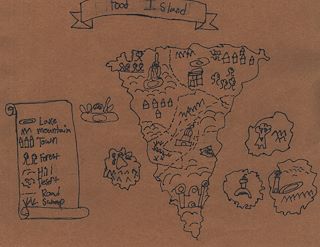 Food Island
Lake
mountain
Town
Forest
Hil
Desert
Road
Swomp